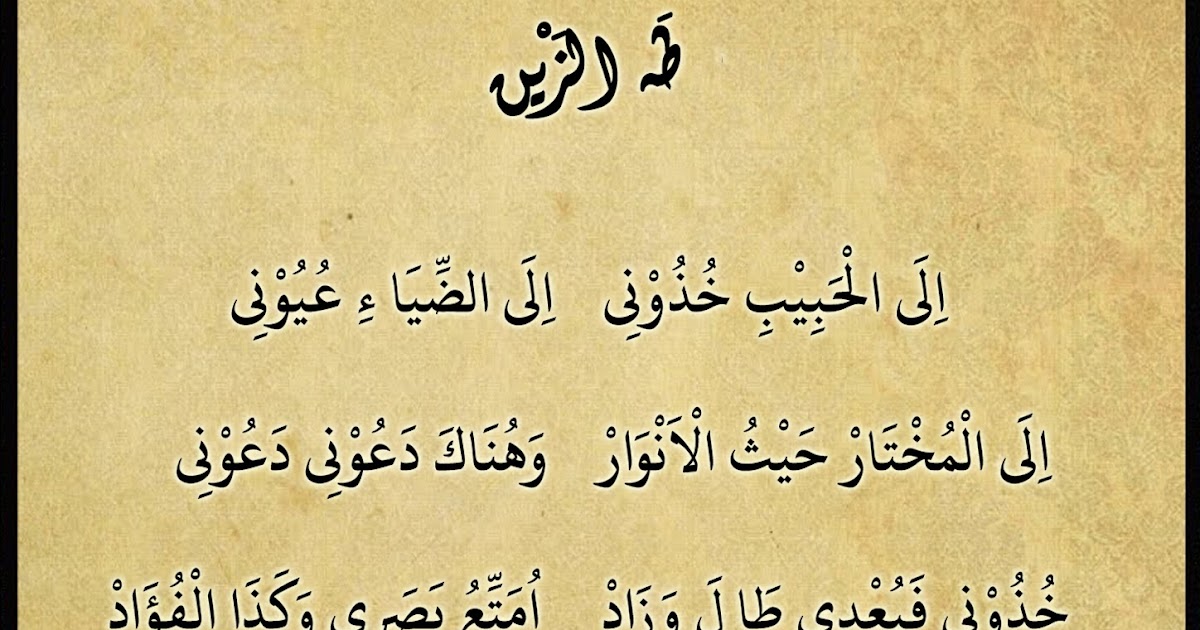 طَهَ الزَّيْن
اِلَى الْحَبِيْبِ خُذُوْنِى اِلَى الضِّيَا ءِ عُيُوْنِى
اِلَى الْمُخْتَارْ حَيْثُ الْاَنْوَارْ وَهُنَاكَ دَعُوْنِى دَعُوْنِى
خُذُوْنِى فَبُعْدِى طَا لَ وَزَادْ اُمَتِّعُ بَصَرِى وَكَذَا الْفُؤَادْ